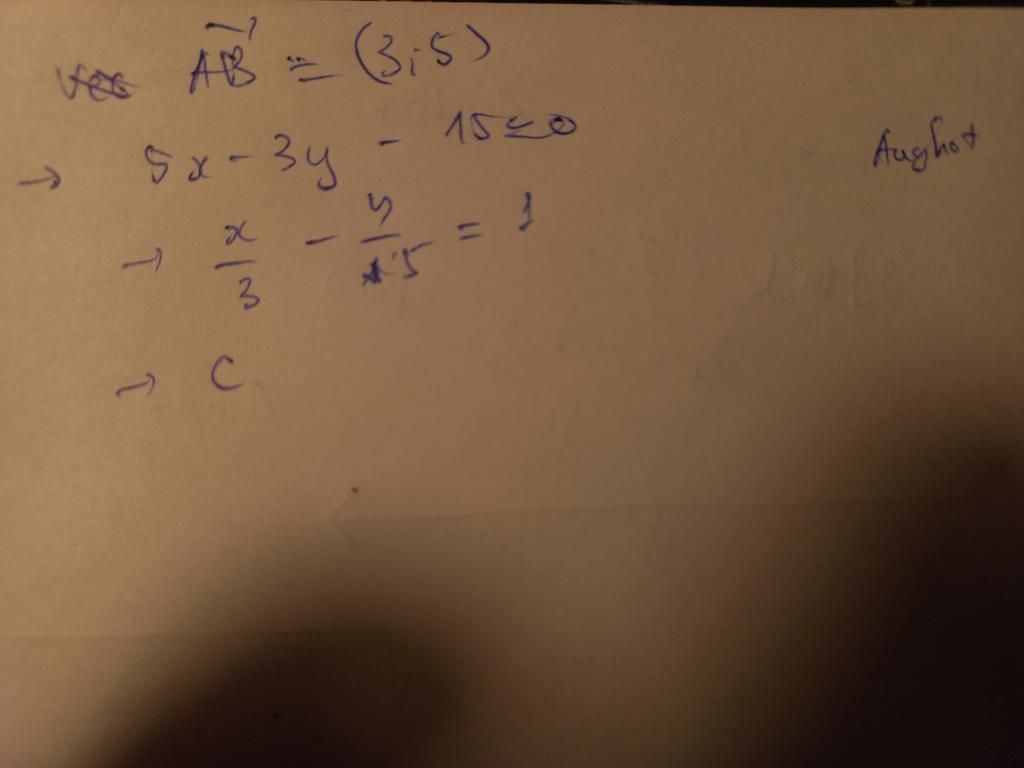 AB = (3;5)
→ 5x - 3y - 15 = 0
Aughot
→ x/3 - y/5 = 1
→ C